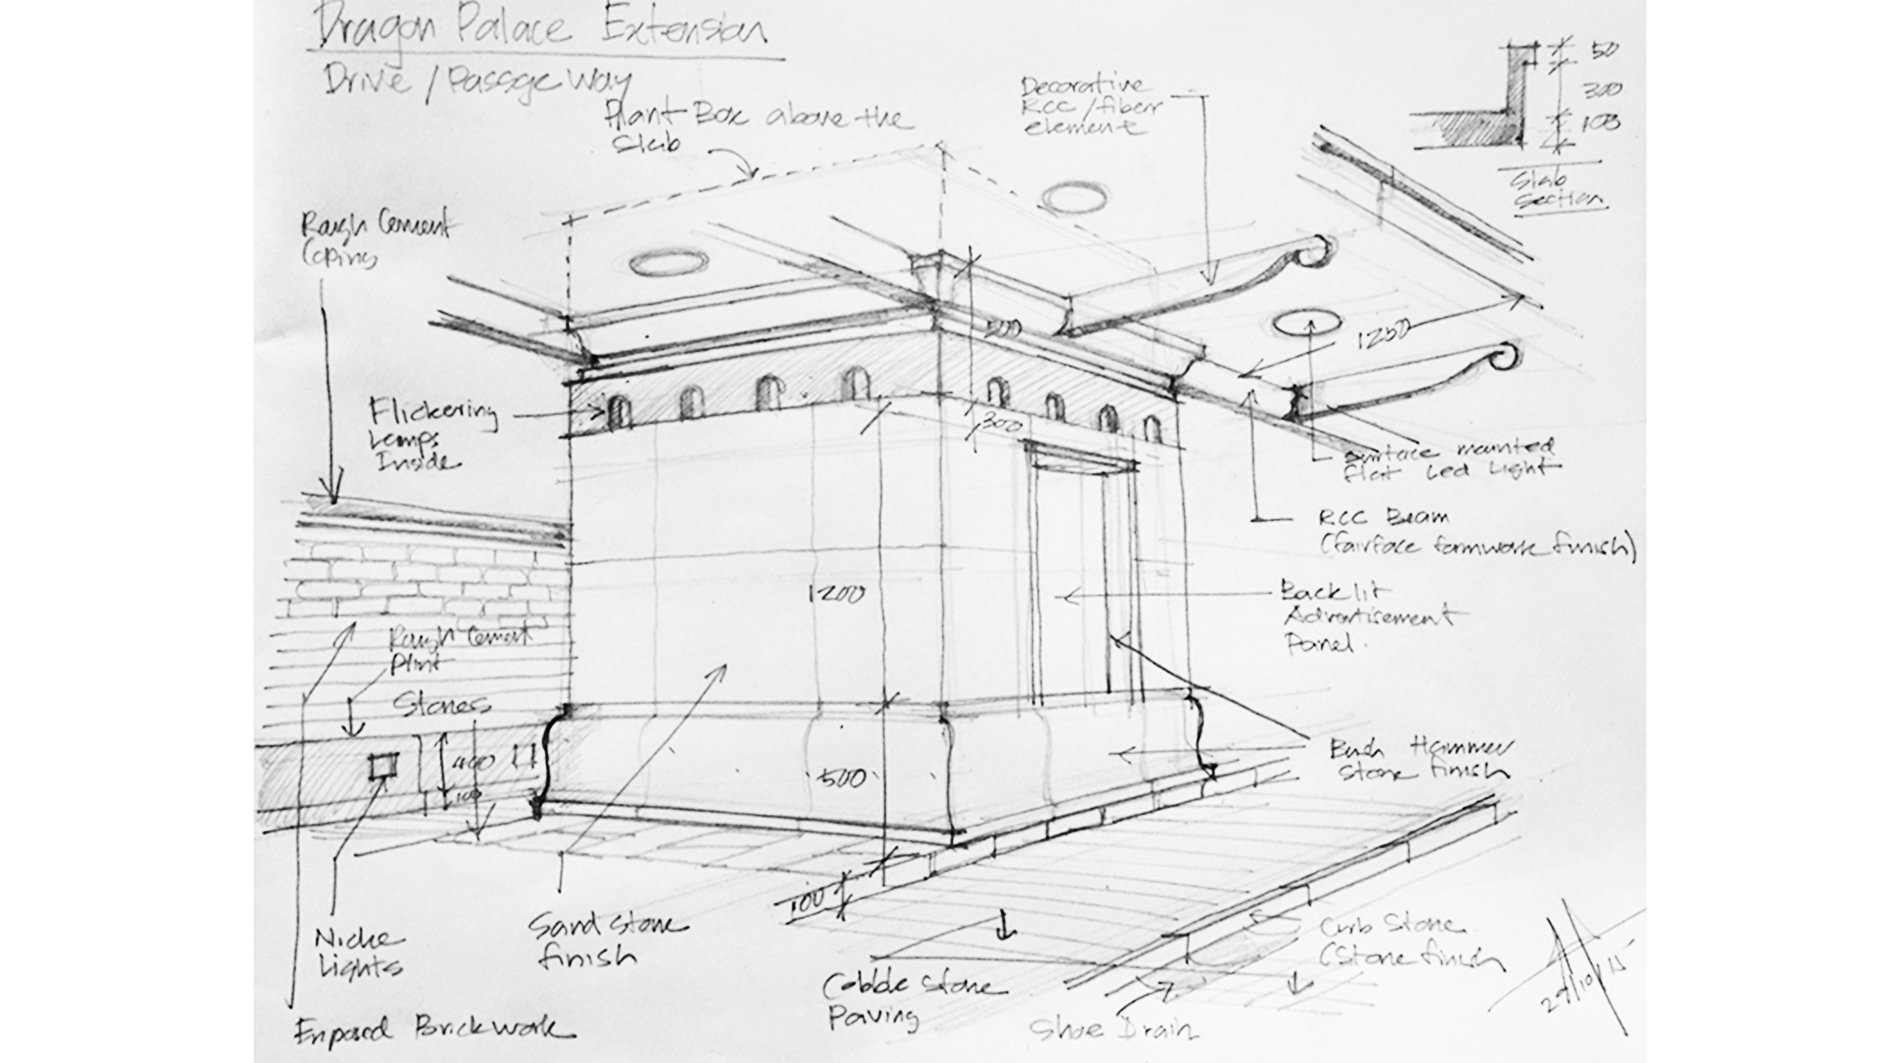 Dragon Palace Extension
Drive / Passge Way
Plant Box above the
Slab
Decorative
RCC / fiber
element
50
300
100
Slab
Section
Rough Cement
Coping
500
1250
Flickering
Lamps
Inside
300
Surface mounted
flat Led Light
RCC Beam
(fairface formwork finish)
1200
Backlit
Advertisement
Panel.
Rough Cement
Plint
Stones
400
100
500
Bush Hammer
Stone finish
100
Niche
Lights
Sand stone
finish
Cobble stone
Paving
Curb Stone
(Stone finish
Shoe Drain
Exposed Brickwork